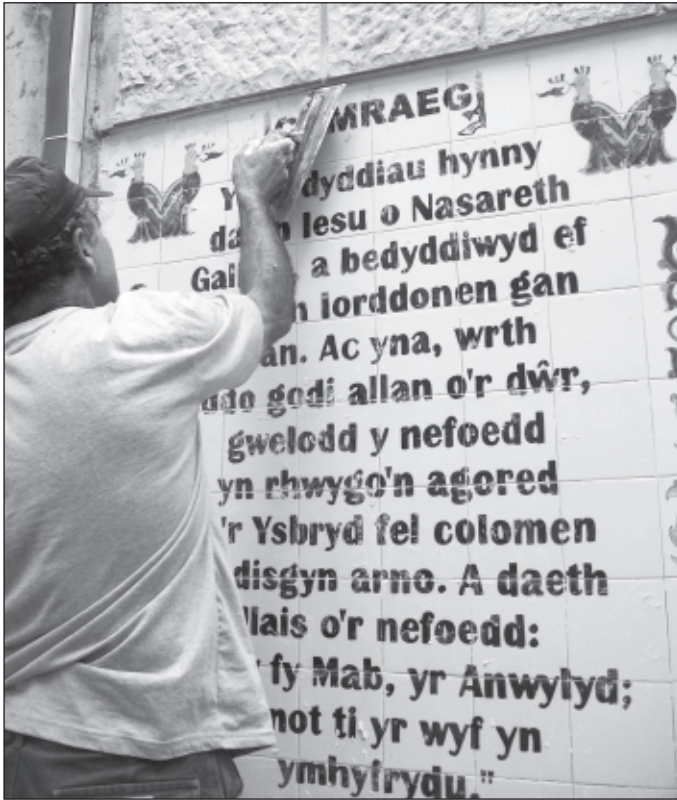 MRAEG
dyddiau hynny
Iesu o Nasareth
a bedyddiwyd ef
iorddonen gan
Ac yna, wrth
godi allan o'r dŵr,
gwelodd y nefoedd
yn rhwygo'n agored
'r Ysbryd fel colomen
disgyn arno. A daeth
llais o'r nefoedd:
fy Mab, yr Anwylyd;
ti yr wyf yn
ymhyfrydu."